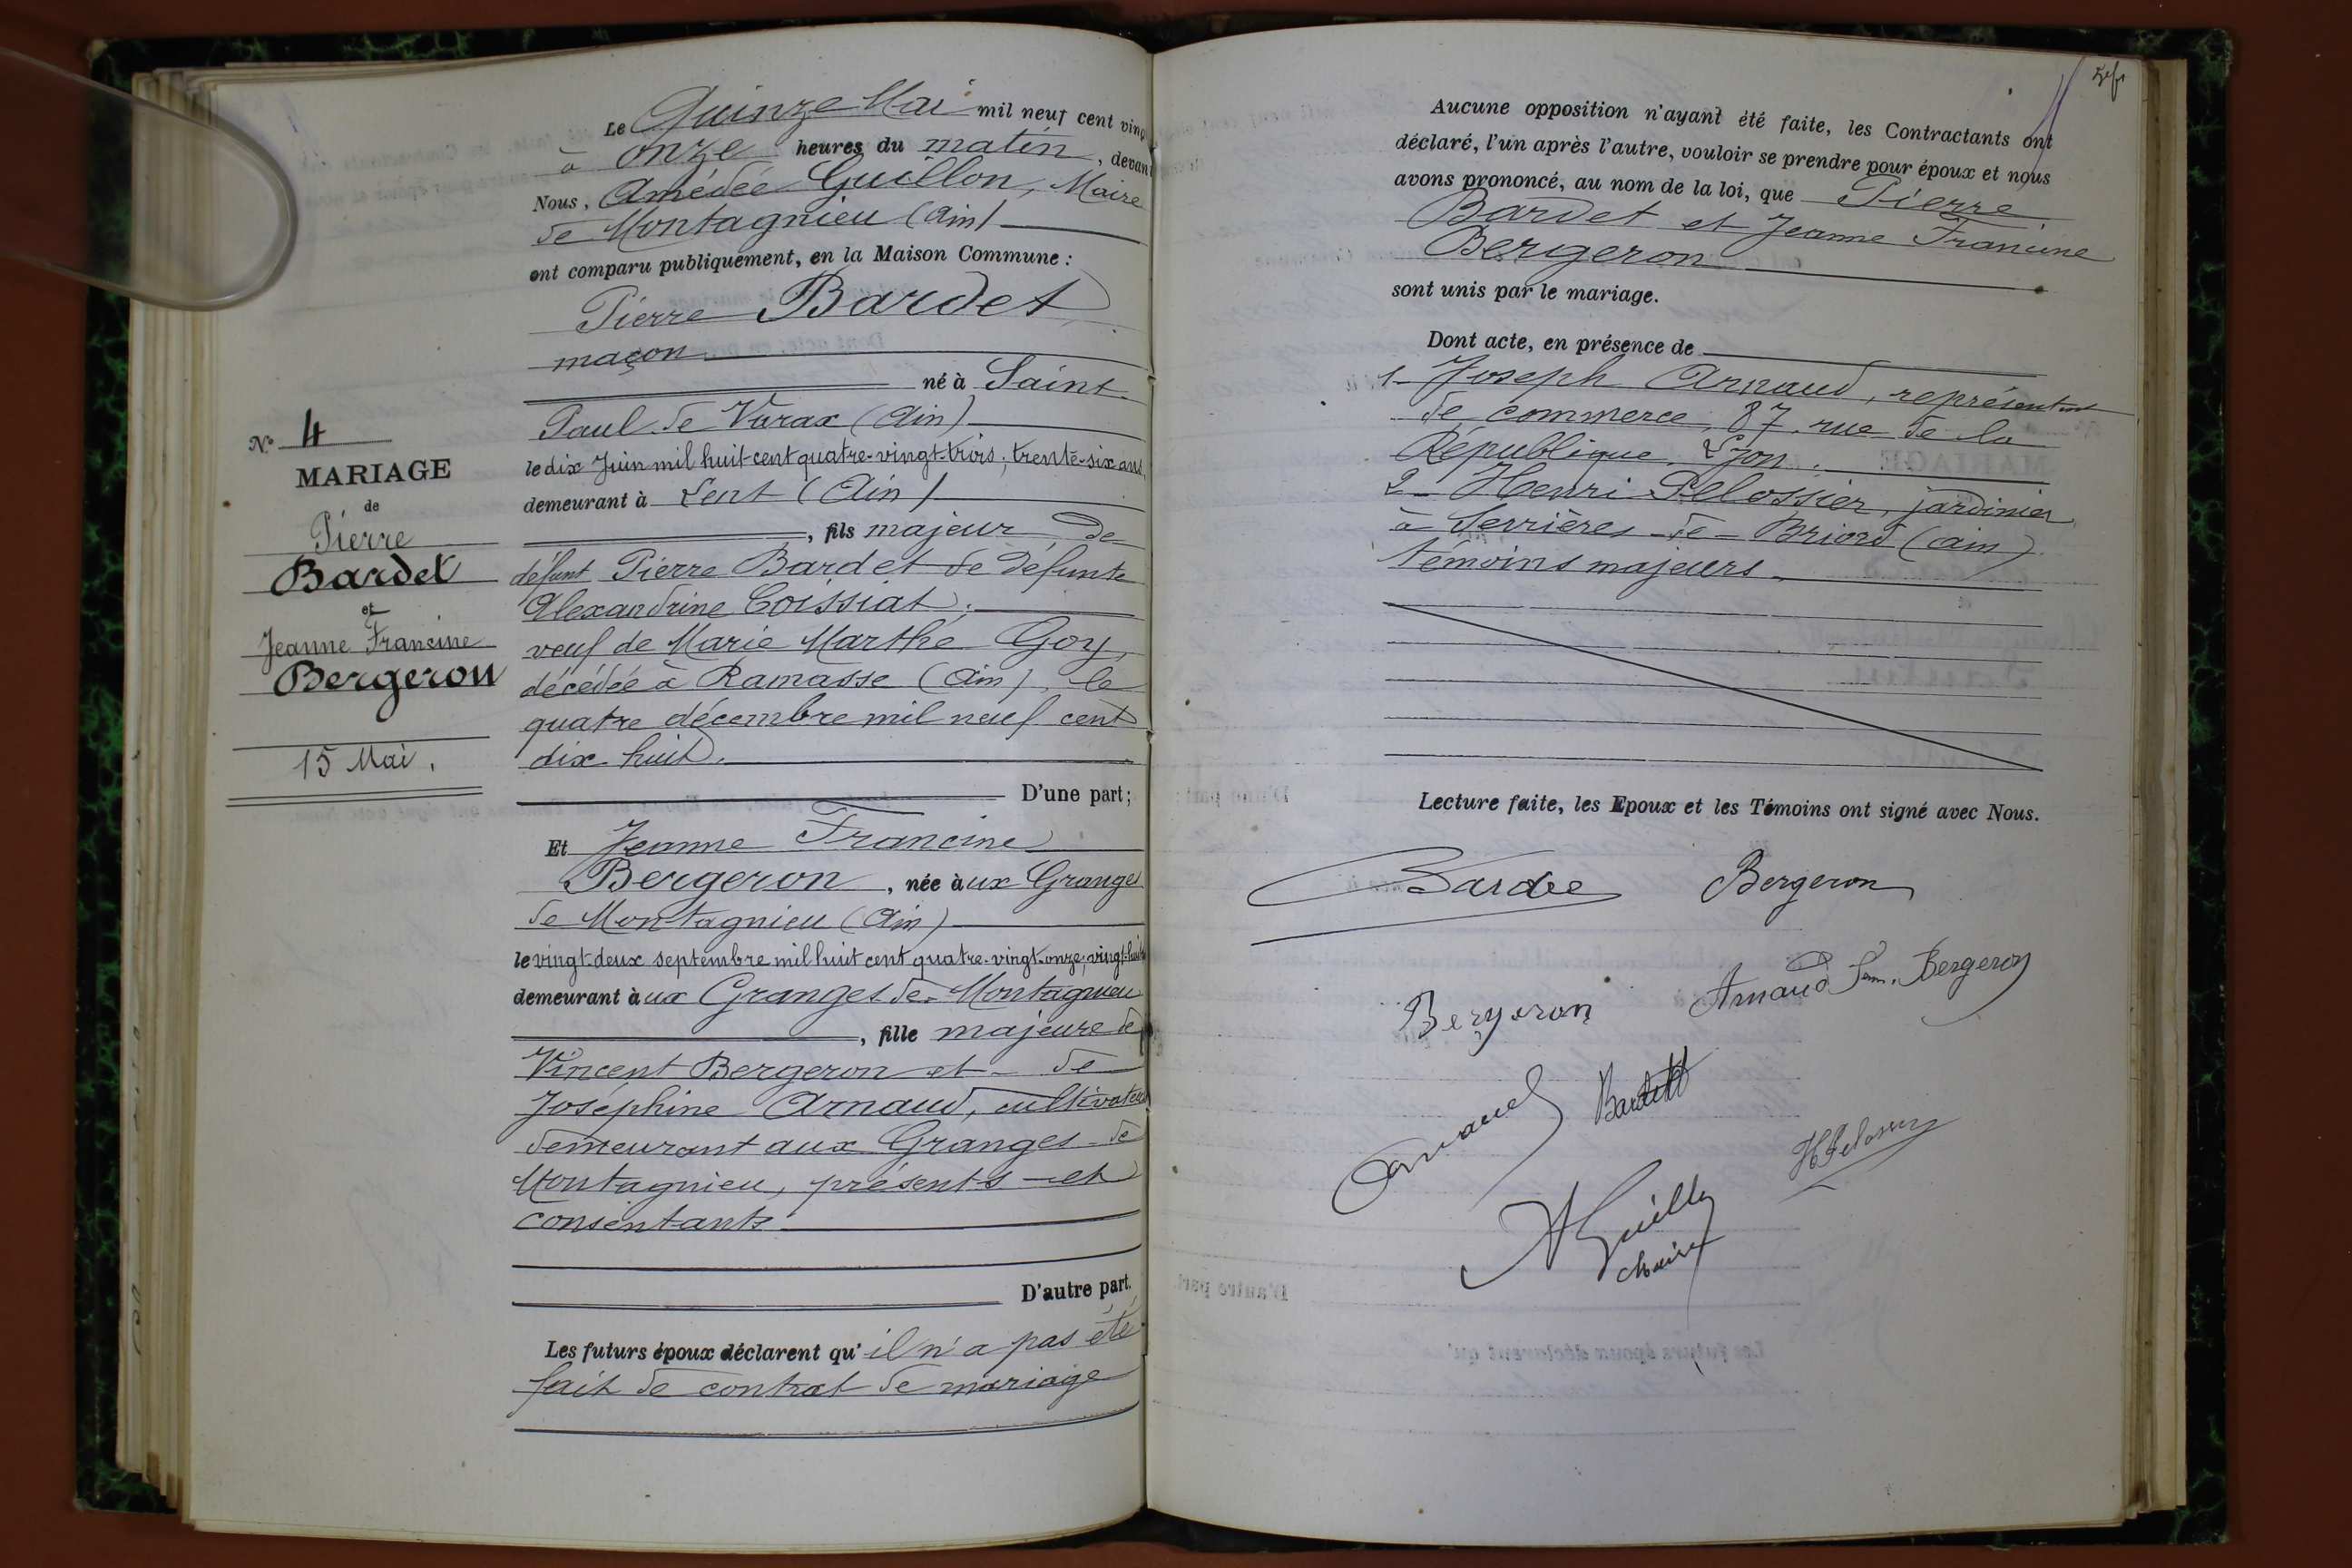 Le Quinze Mai mil neuf cent ving
à onze heures du matin, devant
Nous, Amédée Guillon, Maire
de Montagnieu (Ain)
ont comparu publiquement, en la Maison Commune :
Pierre Bardet
maçon
né à Saint-
Paul de Varax (Ain)
le dix Juin mil huit cent quatre-vingt-trois ; trente-six ans
demeurant à Lent (Ain)
, fils majeur de
défunt Pierre Bardet de défunte
Alexandrine Coissiat ;
veuf de Marie Marthe Goy,
décédée à Ramasse (Ain), le
quatre décembre mil neuf cent
dix huit.
D'une part ;
Et Jeanne Francine
Bergeron, née aux Granges
de Montagnieu (Ain)
le vingt-deux septembre mil huit cent quatre-vingt-onze ; vingt-huit
demeurant à ux Granges de Montagnieu
, fille majeure de
Vincent Bergeron et de
Joséphine Arnaud, cultivateurs
demeurant aux Granges de
Montagnieu, présents et
consentants
D'autre part.
Les futurs époux déclarent qu' il n'a pas été
fait de contrat de mariage
N° 4
MARIAGE
de
Pierre
Bardet
et
Jeanne Francine
Bergeron
15 Mai.
Aucune opposition n'ayant été faite, les Contractants ont
déclaré, l'un après l'autre, vouloir se prendre pour époux et nous
avons prononcé, au nom de la loi, que Pierre
Bardet et Jeanne Francine
Bergeron
sont unis par le mariage.
Dont acte, en présence de
1- Joseph Arnaud, représentant
de commerce, 87, rue de la
République, Lyon.
2- Henri Pelossier, jardinier
à Serrières-de-Briord (Ain)
témoins majeurs.
Lecture faite, les Epoux et les Témoins ont signé avec Nous.
Bardet Bergeron
Bergeron Arnaud fem. Bergeron
Arnaud Bardet
H Pelossier
A Guillon
Maire